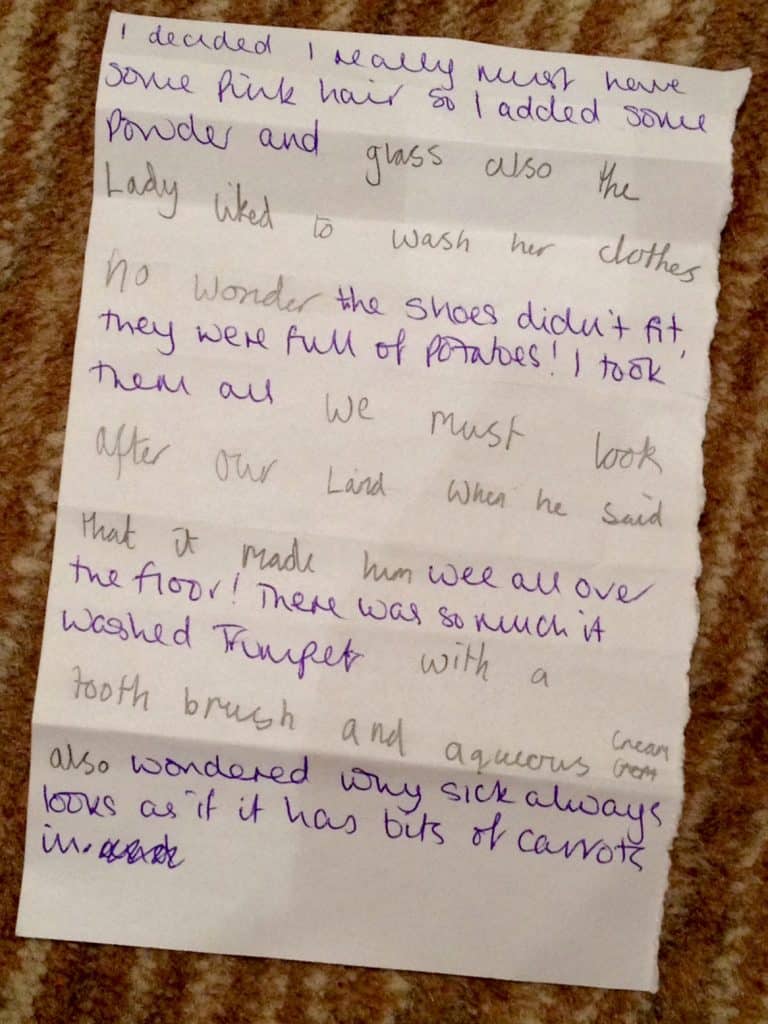 I decided I really must have
some pink hair so I added some
Powder and glass also the
Lady liked to wash her clothes
no wonder the shoes didn't fit,
they were full of potatoes! I took
them all we must look
after our Land when he said
that it made him wee all over
the floor! There was so much it
washed Trumpet with a
tooth brush and aqueous cream
also wondered why sick always
looks as if it has bits of carrots
in.